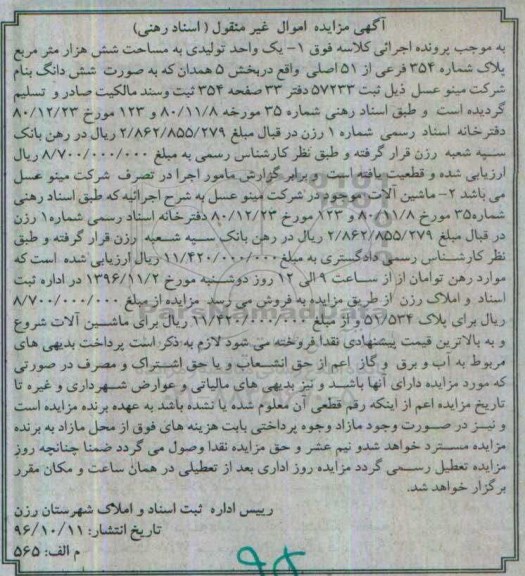 آگهی مزایده اموال غیر منقول (اسناد رهنی)
به موجب پرونده اجرائی کلاسه فوق ۱- یک واحد تولیدی به مساحت شش هزار متر مربع
پلاک شماره ۳۵۴ فرعی از ۵۱ اصلی واقع دربخش ۵ همدان که به صورت شش دانگ بنام
شرکت مینو عسل ذیل ثبت ۵۷۲۳۳ دفتر ۳۳ صفحه ۳۵۴ ثبت وسند مالکیت صادر و تسلیم
گردیده است و طبق اسناد رهنی شماره ۳۵ مورخه ۸۰/۱۱/۸ و ۱۲۳ مورخ ۸۰/۱۲/۲۳
دفترخانه اسناد رسمی شماره ۱ رزن در قبال مبلغ ۲/۸۶۲/۸۵۵/۲۷۹ ریال در رهن بانک
سپه شعبه رزن قرار گرفته و طبق نظر کارشناس رسمی به مبلغ ۸/۷۰۰/۰۰۰/۰۰۰ ریال
ارزیابی شده و قطعیت یافته است و برابر گزارش مامور اجرا در تصرف شرکت مینو عسل
می باشد ۲- ماشین آلات موجود در شرکت مینو عسل به شرح اجرائیه که طبق اسناد رهنی
شماره۳۵ مورخ ۸۰/۱۱/۸ و ۱۲۳ مورخ ۸۰/۱۲/۲۳ دفتر خانه اسناد رسمی شماره۱ رزن
در قبال مبلغ ۲/۸۶۲/۸۵۵/۲۷۹ ریال در رهن بانک سپه شعبه رزن قرار گرفته و طبق
نظر کارشناس رسمی دادگستری به مبلغ ۱۱/۴۲۰/۰۰۰/۰۰۰ ریال ارزیابی شده است که
موارد رهن توامان از از ساعت ۹ الی ۱۲ روز دوشنبه مورخ ۱۳۹۶/۱۱/۲ در اداره ثبت
اسناد و املاک رزن از طریق مزایده به فروش می رسد مزایده از مبلغ ۸/۷۰۰/۰۰۰/۰۰۰
ریال برای پلاک ۵۱/۵۳۴ و از مبلغ ۱۱/۴۲۰/۰۰۰/۰۰۰ ریال برای ماشین آلات شروع
و به بالاترین قیمت پیشنهادی نقدا فروخته می شود لازم به ذکر است پرداخت بدیهی های
مربوط به آب و برق و گاز اعم از حق انشعاب و یا حق اشتراک و مصرف در صورتی
که مورد مزایده دارای آنها باشد و نیز بدیهی های مالیاتی و عوارض شهرداری و غیره تا
تاریخ مزایده اعم از اینکه رقم قطعی آن معلوم شده یا نشده باشد به عهده برنده مزایده است
و نیز در صورت وجود مازاد وجوه پرداختی بابت هزینه های فوق از محل مازاد به برنده
مزایده مسترد خواهد شدو نیم عشر و حق مزایده نقدا وصول می گردد ضمنا چنانچه روز
مزایده تعطیل رسمی گردد مزایده روز اداری بعد از تعطیلی در همان ساعت و مکان مقرر
برگزار خواهد شد.
رییس اداره ثبت اسناد و املاک شهرستان رزن
تاریخ انتشار: ۹۶/۱۰/۱۱
م الف: ۵۶۵